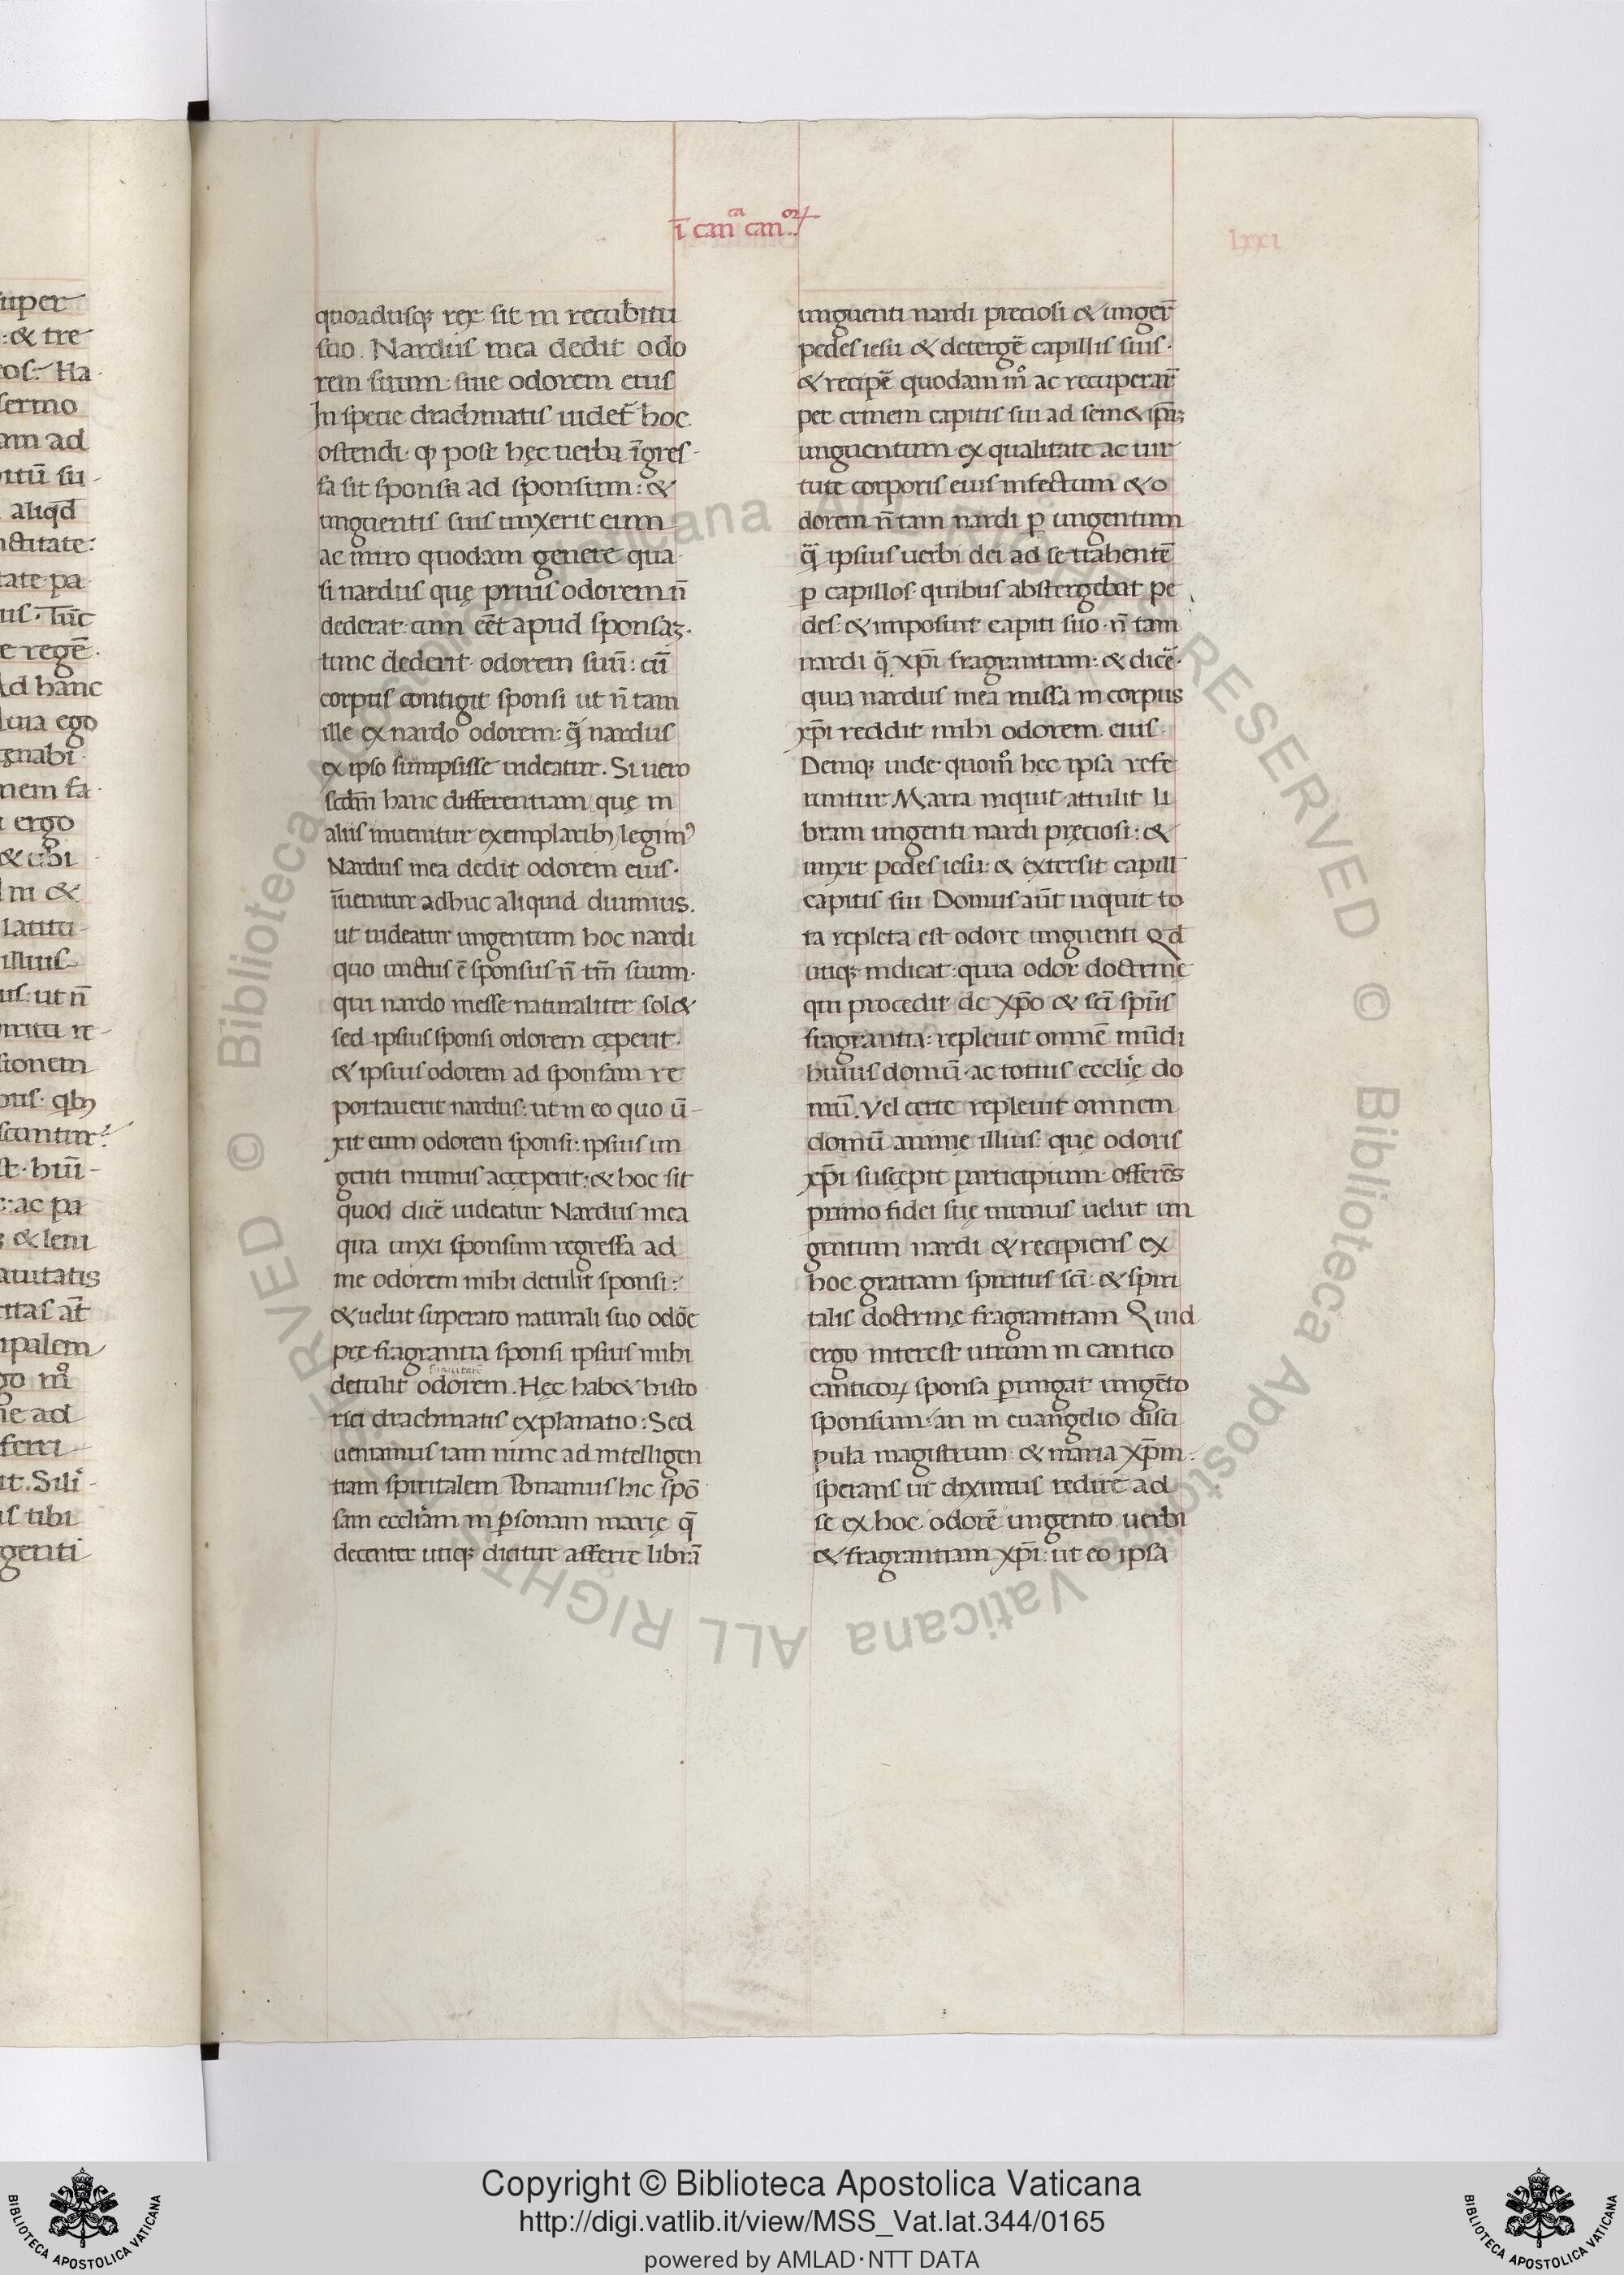 ī can̄ca can̄.oꝝ
lxxi
quoadusqꝫ rex sit in recubitu
suo. Nardus mea dedit odo
rem suum: siue odorem eius
In specie drachmatis uidet̄ hoc
ostendi. ꝙ post hęc uerba īgres-
sa sit sponsa ad sponsum: &
unguentis suis unxerit eum
ac miro quodam genere qua
si nardus quę prius odorem n̄
dederat: cum eēt apud sponsaꝫ.
tunc dederit odorem suū: cū
corpus contigit sponsi ut n̄ tam
ille ex nardo odorem: q̄ nardus
ex ipso sumpsisse uideatur. Si uero
scdm̄ hanc differentiam quę in
aliis inuenitur exemplarib; legim⁹
Nardus mea dedit odorem eius.
īuenitur adhuc aliquid diuinius.
ut uideatur ungentum hoc nardi
quo unctus ē sponsus n̄ tm̄ suum.
qui nardo inesse naturaliter sol&
sed ipsius sponsi odorem cęperit.
& ipsius odorem ad sponsam re
portauerit nardus: ut in eo quo ū-
xit eum odorem sponsi: ipsius un
genti munus accęperit: & hoc sit
quod dicē uideatur Nardus mea
qua unxi sponsum regressa ad
me odorem mihi detulit sponsi:
& uelut superato naturali suo odōe
pre fragrantia sponsi ipsius mihi
suauitatē
detulit odorem. Hęc hab& histo
rici drachmatis explanatio: Sed
ueniamus iam nunc ad intelligen
tiam spiritalem Ponamus hic spō
sam eccliam in ꝑsonam marię q̄
decenter utiqꝫ dicitur afferre librā
unguenti nardi preciosi & unger̄
pedes iesu & detergē capillis suis.
& recipē quodam m̊ ac recuperar̄
per crinem capitis sui ad sem&ipꝫ
unguentum ex qualitate ac uir
tute corporis eius infectum & o
dorem n̄ tam nardi ꝑ ungentum
q̄ ipsius uerbi dei ad se trahentē
ꝑ capillos quibus abstergebat pe
des: & imposuit capiti suo n̄ tam
nardi q̄ xp̄i fragrantiam: & dicē.
quia nardus mea missa in corpus
xp̄i reddit mihi odorem eius
Deniqꝫ uide quom̊ hec ipsa refe
runtur Maria inquit attulit li
bram ungenti nardi pręciosi: &
unxit pedes iesu: & extersit capill
capitis sui Domus aūt inquit to
ta repleta est odore unguenti Qd̄
utiqꝫ indicat: quia odor doctrinę
qui procedit de xp̄o & sc̄i sp̄us
fragrantia: repleuit omnē mūdi
huius domū. ac totius ecclię do
mū. Vel certe repleuit omnem
domū animę illius: que odoris
xp̄i suscępit participium offerēs
primo fidei suę munus uelut un
gentum nardi & recipiens ex
hoc gratiam spiritus sc̄i: & spiri
talis doctrinę fragrantiam Quid
ergo interest utrum in cantico
canticoꝝ sponsa ꝑungat ungēto
sponsum: an in euangelio disci
pula magistrum & maria xp̄m.
sperans ut diximus redire ad
se ex hoc odorē ungento uerbi
& fragrantiam xp̄i: ut eo ipsa
Copyright © Biblioteca Apostolica Vaticana
http://digi.vatlib.it/view/MSS_Vat.lat.344/0165
powered by AMLAD·NTT DATA
BIBLIOTECA APOSTOLICA VATICANA
BIBLIOTECA APOSTOLICA VATICANA